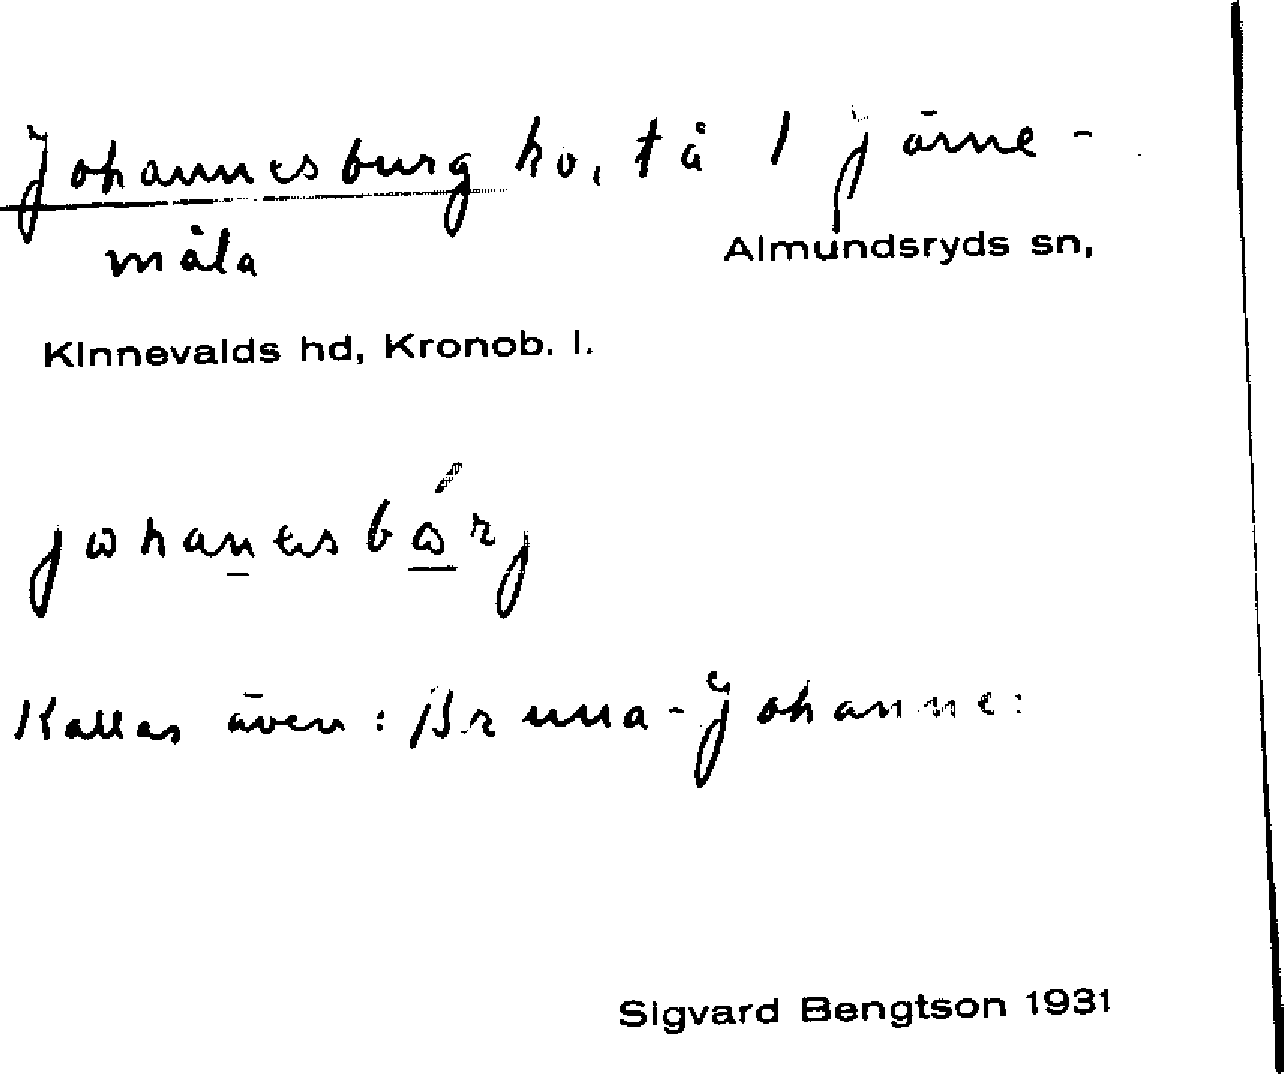 Johannesburg ho, tå 1 Järne-
måla
Almundsryds sn,
Kinnevalds hd, Kronob. l.
Kallas även: Brunna-Johanne:
Sigvard Bengtson 1931